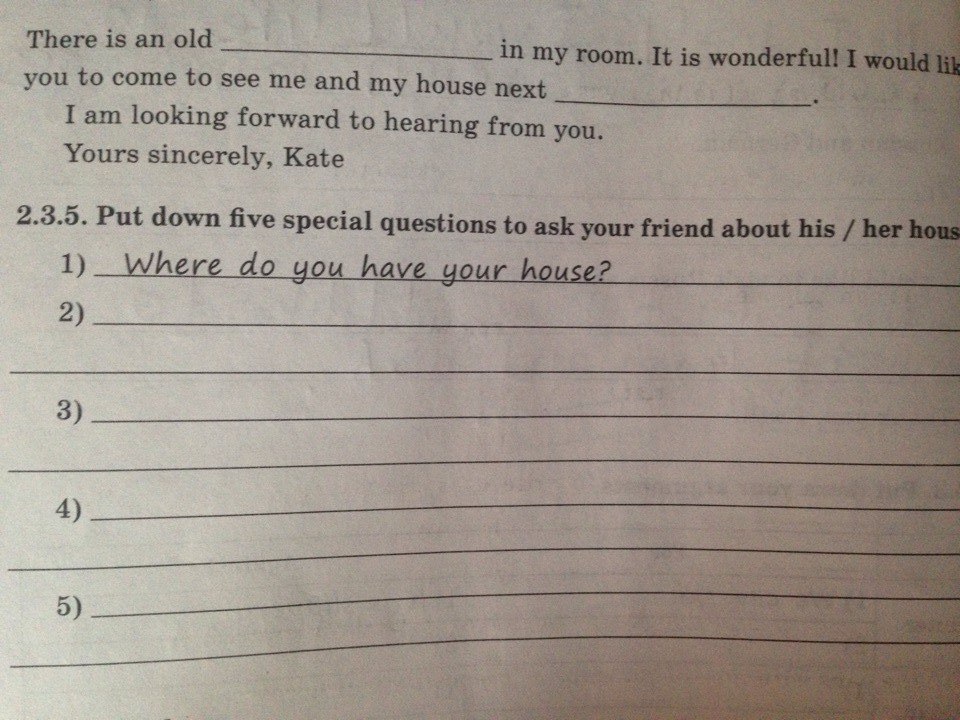 There is an old ____________________ in my room. It is wonderful! I would lik
you to come to see me and my house next ____________________.
I am looking forward to hearing from you.
Yours sincerely, Kate
2.3.5. Put down five special questions to ask your friend about his / her hous
1) Where do you have your house?
2)
3)
4)
5)